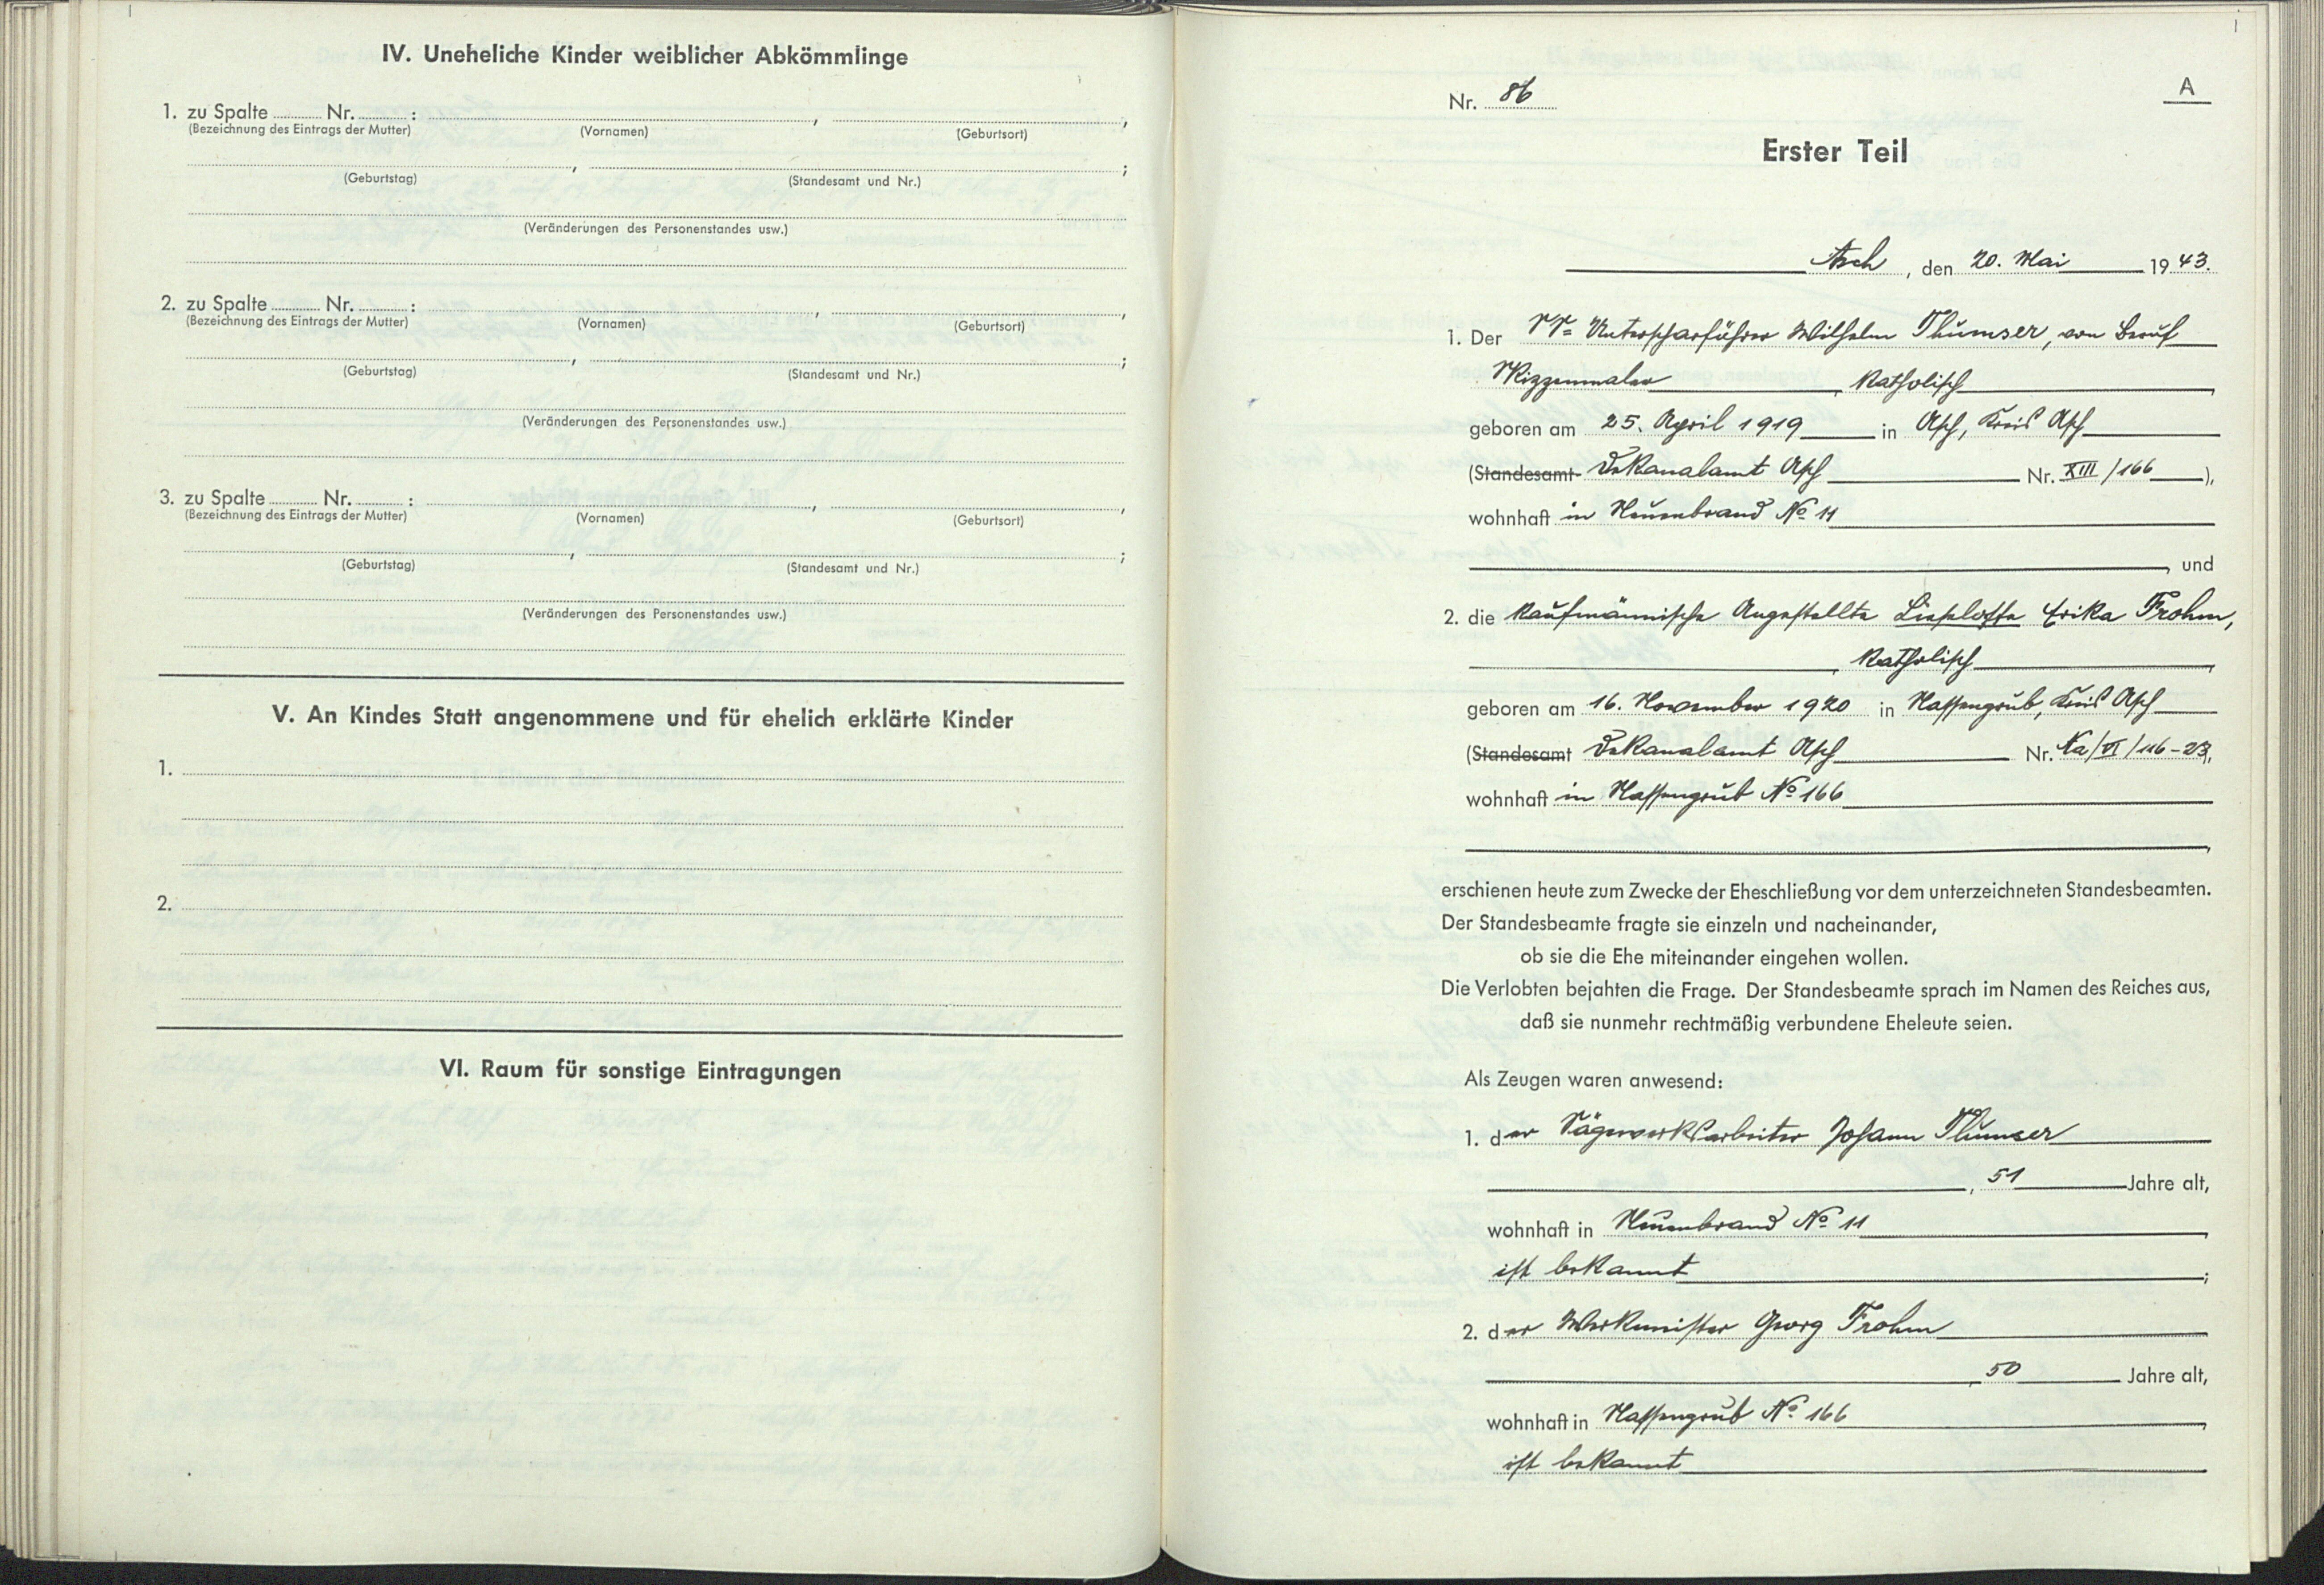 IV. Uneheliche Kinder weiblicher Abkömmlinge
1. zu Spalte Nr. : , ,
(Bezeichnung des Eintrags der Mutter) (Vornamen) (Geburtsort)
, ;
(Geburtstag) (Standesamt und Nr.)
(Veränderungen des Personenstandes usw.)
2. zu Spalte Nr. : , ,
(Bezeichnung des Eintrags der Mutter) (Vornamen) (Geburtsort)
, ;
(Geburtstag) (Standesamt und Nr.)
(Veränderungen des Personenstandes usw.)
3. zu Spalte Nr. : , ,
(Bezeichnung des Eintrags der Mutter) (Vornamen) (Geburtsort)
, ;
(Geburtstag) (Standesamt und Nr.)
(Veränderungen des Personenstandes usw.)
V. An Kindes Statt angenommene und für ehelich erklärte Kinder
1.
2.
VI. Raum für sonstige Eintragungen
A
Nr. 86
Erster Teil
Asch, den 20. Mai 1943.
1. Der SS-Unterscharführer Wilhelm Thumser, von Beruf
Skizzenmaler, katholisch,
geboren am 25. April 1919 in Asch, Kreis Asch
(Standesamt Dekanalamt Asch Nr. XIII/166),
wohnhaft in Neuenbrand No 11
, und
2. die kaufmännische Angestellte Lieselotte Erika Frohm,
, katholisch,
geboren am 16. November 1920 in Nassengrub, Kreis Asch
(Standesamt Dekanalamt Asch Nr. Na/VI/116-23),
wohnhaft in Nassengrub No 166
,
erschienen heute zum Zwecke der Eheschließung vor dem unterzeichneten Standesbeamten.
Der Standesbeamte fragte sie einzeln und nacheinander,
ob sie die Ehe miteinander eingehen wollen.
Die Verlobten bejahten die Frage. Der Standesbeamte sprach im Namen des Reiches aus,
daß sie nunmehr rechtmäßig verbundene Eheleute seien.
Als Zeugen waren anwesend:
1. der Sägewerksarbeiter Johann Thumser
, 51 Jahre alt,
wohnhaft in Neuenbrand No 11,
ist bekannt;
2. der Werkmeister Georg Frohm
, 50 Jahre alt,
wohnhaft in Nassengrub No 166,
ist bekannt